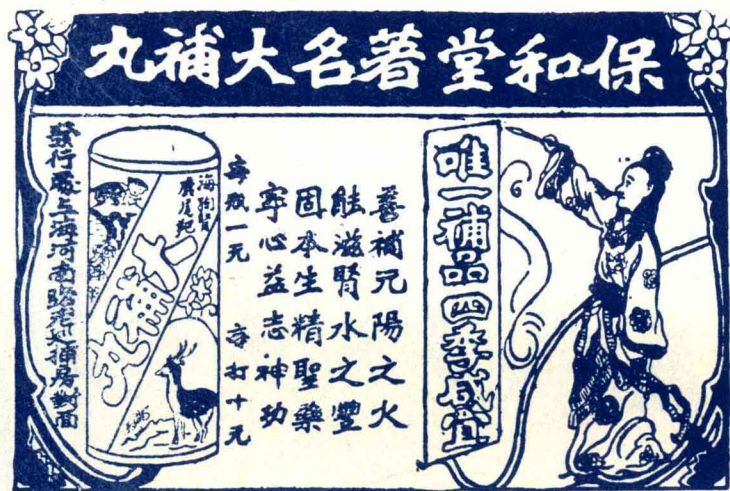 保和堂著名大補丸
唯一補品四季咸宜
善補元陽之火
能滋腎水之豐
固本生精聖藥
寧心益志神功
每瓶一元 每打十元
海狗腎
鹿尾巴
大補丸
發行處上海河南路老巡捕房對面